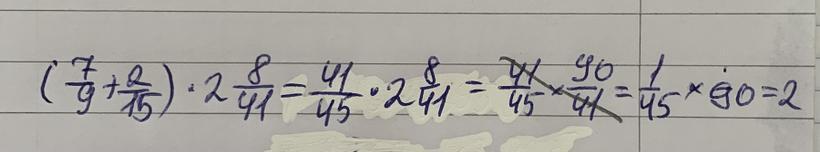 (7/9 + 2/15) · 2 8/41 = 41/45 · 2 8/41 = 41/45 × 90/41 = 1/45 × 90 = 2